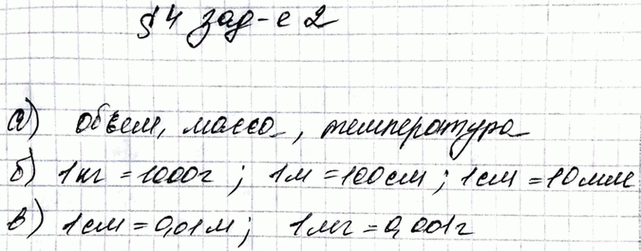 § 4 зад-е 2
а) объем, масса, температура
б) 1кг = 1000г; 1м = 100см; 1см = 10мм
в) 1см = 0,01м; 1мг = 0,001г